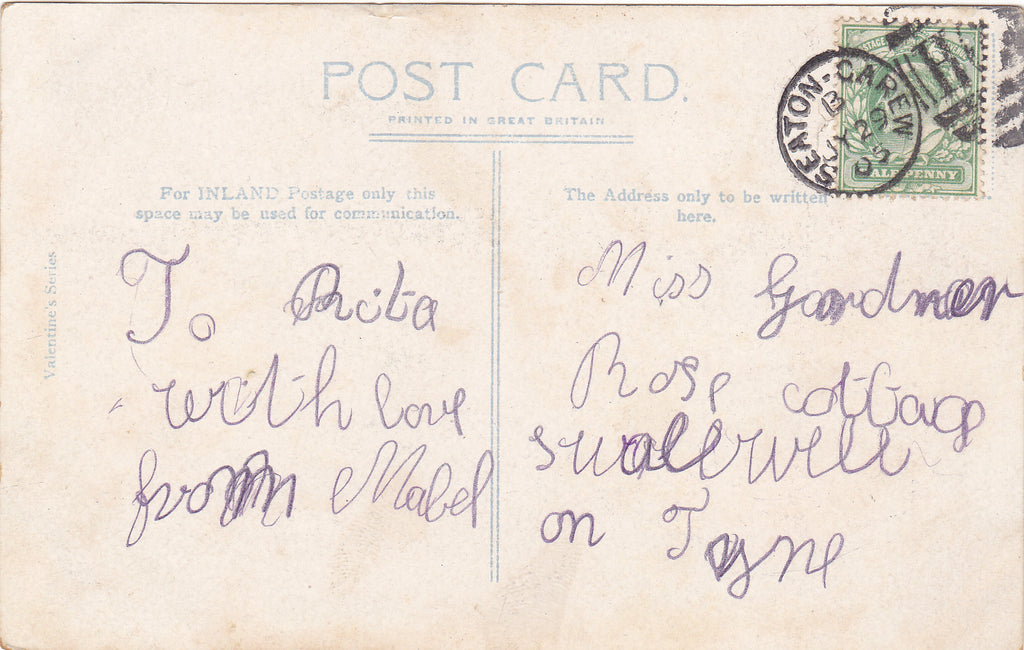 POST CARD.
PRINTED IN GREAT BRITAIN
For INLAND Postage only this
space may be used for communication.
The Address only to be written
here.
Valentine's Series
SEATON-CAREW
B
JY 29
05
POSTAGE
HALFPENNY
To Rita
with love
from Mabel
Miss Gardner
Rose cottage
swallwell
on Tyne